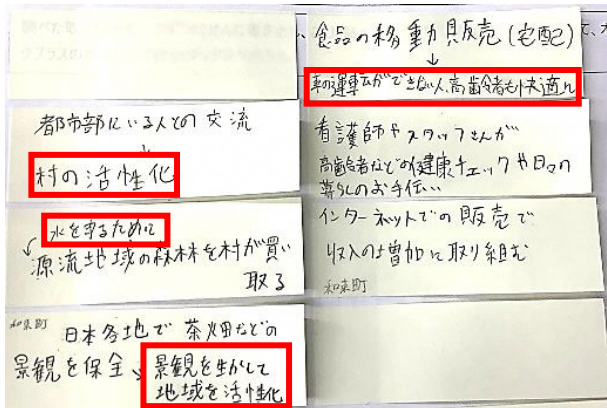 都市部にいる人との交流
↓
村の活性化
水を守るために
源流地域の森林を村が買い
取る
和束町
日本各地で茶畑などの
景観を保全
景観を生かして
地域を活性化
食品の移動販売(宅配)
↓
車の運転ができない人、高齢者も快適に
看護師やスタッフさんが
高齢者などの健康チェックや日々の
暮らしのお手伝い…
インターネットでの販売で
収入の増加に取り組む
和束町